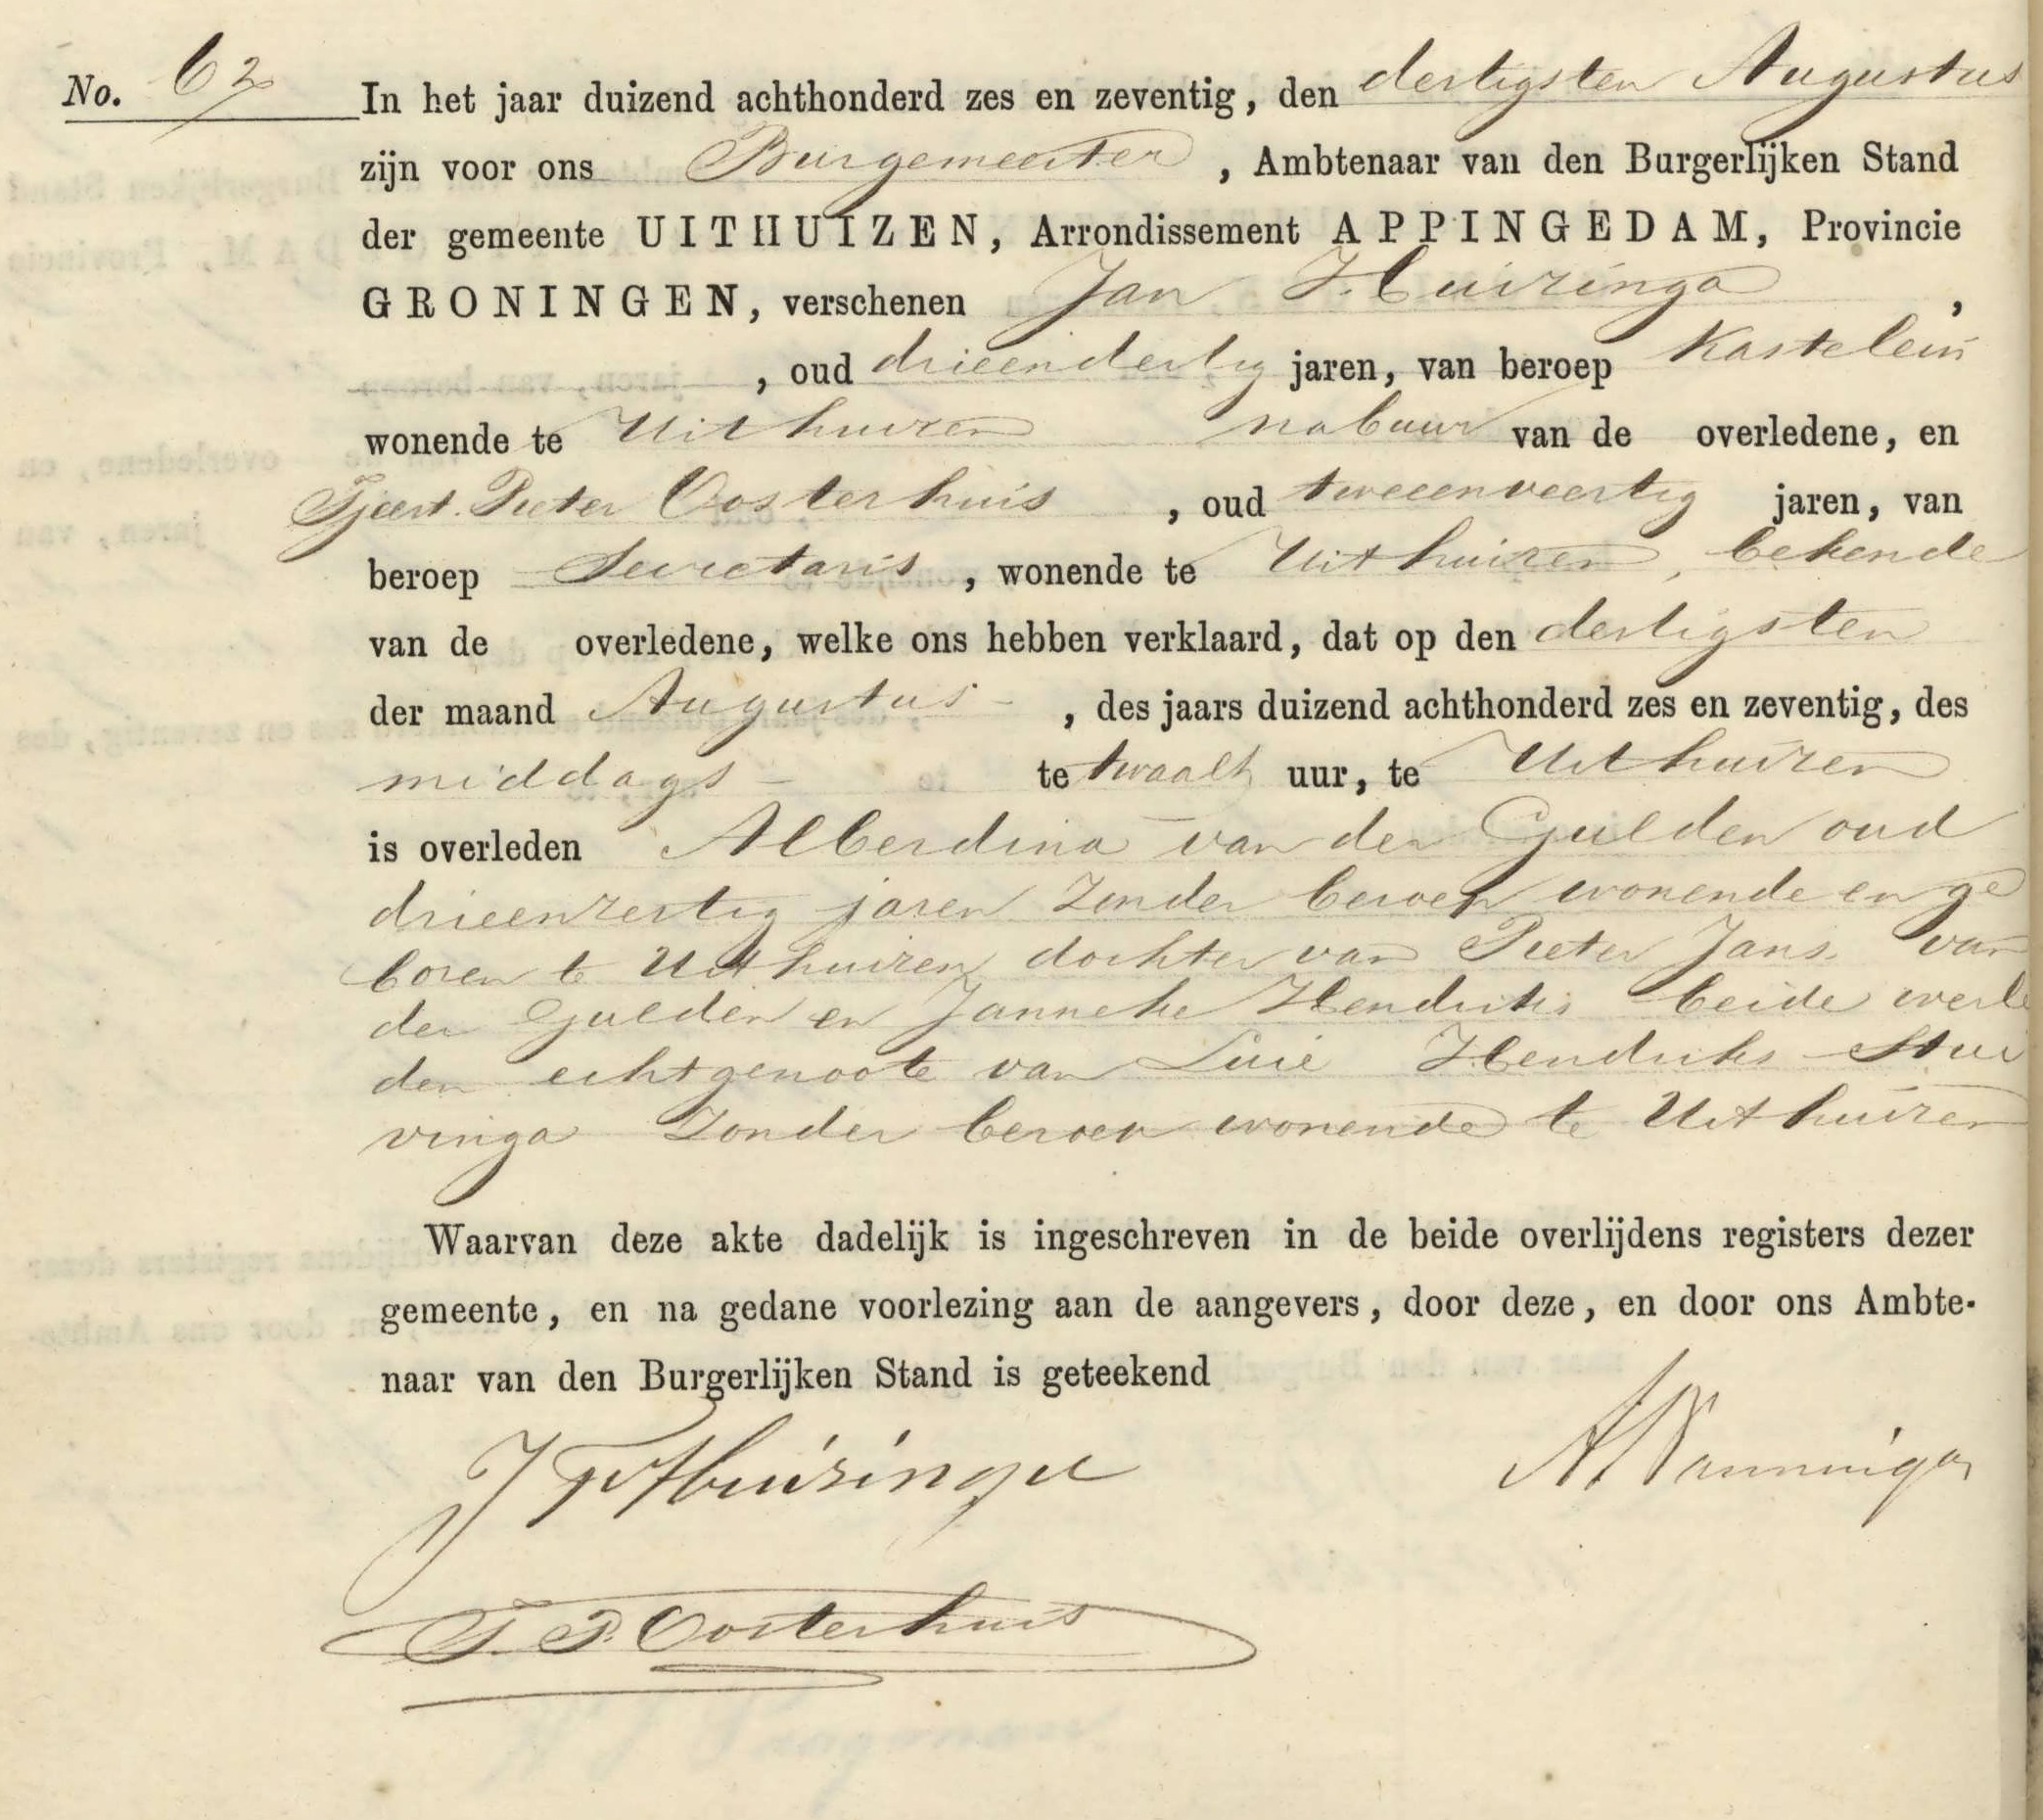 No. 62
In het jaar duizend achthonderd zes en zeventig, den dertigsten Augustus
zijn voor ons Burgemeester, Ambtenaar van den Burgerlijken Stand
der gemeente UITHUIZEN, Arrondissement APPINGEDAM, Provincie
GRONINGEN, verschenen Jan Huizinga,
, oud drieendertig jaren, van beroep Kastelein
wonende te Uithuizen nabuur van de overledene, en
Tjeert Pieter Oosterhuis, oud tweeenveertig jaren, van
beroep Secretaris, wonende te Uithuizen, bekende
van de overledene, welke ons hebben verklaard, dat op den dertigsten
der maand Augustus, des jaars duizend achthonderd zes en zeventig, des
middags te twaalf uur, te Uithuizen
is overleden Alberdina van der Gulden oud
drieenzestig jaren zonder beroep wonende en ge
boren te Uithuizen dochter van Pieter Jans van
der Gulden en Janneke Hendriks beide overle
den echtgenoote van Luie Hendriks Stui
vinga zonder beroep wonende te Uithuizen
Waarvan deze akte dadelijk is ingeschreven in de beide overlijdens registers dezer
gemeente, en na gedane voorlezing aan de aangevers, door deze, en door ons Ambte-
naar van den Burgerlijken Stand is geteekend
Huizinga
Nanninga
T. P. Oosterhuis